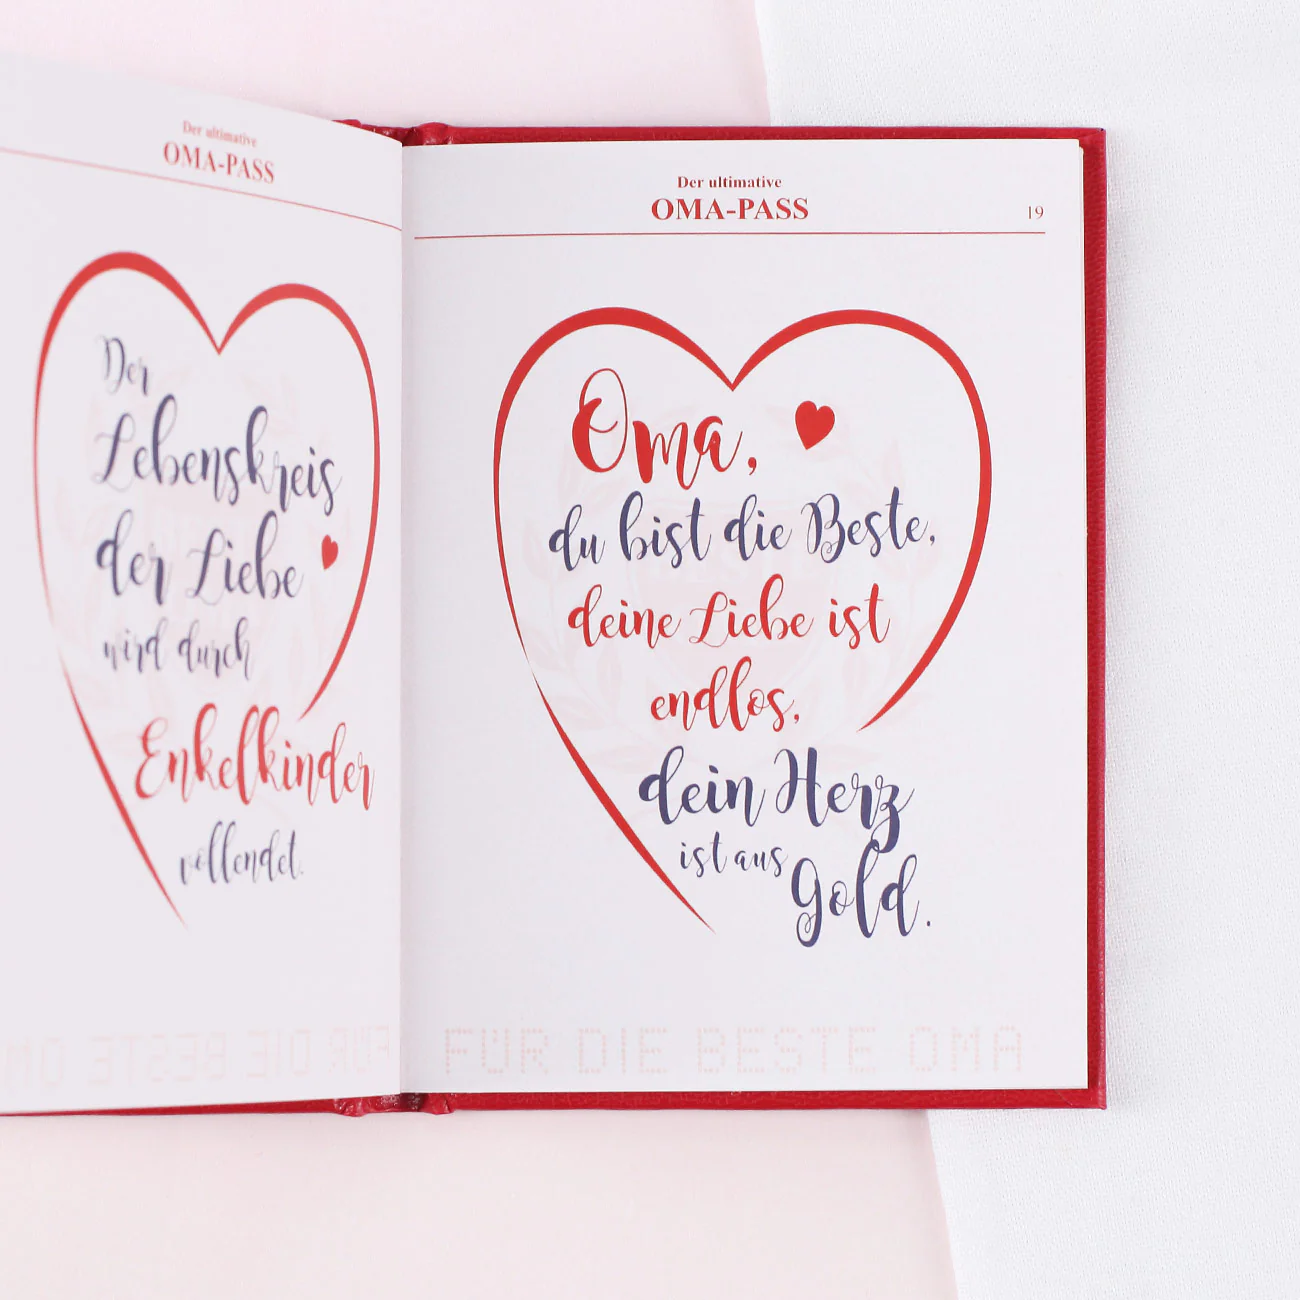 Der ultimative
OMA-PASS
Der
Lebenskreis
der Liebe
wird durch
Enkelkinder
vollendet.
FÜR DIE BESTE OM
Der ultimative
OMA-PASS
19
Oma,
du bist die Beste,
deine Liebe ist
endlos,
dein Herz
ist aus
Gold.
FÜR DIE BESTE OMA